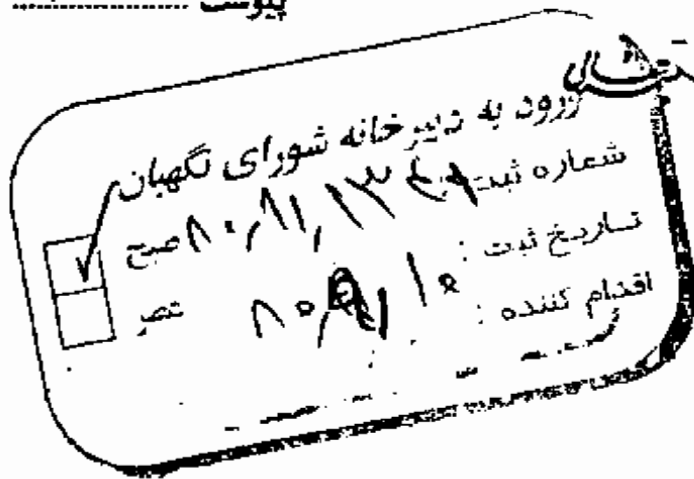 پیوست ....................
ورود به دبیرخانه شورای نگهبان
شماره ثبت: ۸۰٫۸۱٫۱۳۴۹ صبح
تاریخ ثبت: عصر
اقدام کننده: